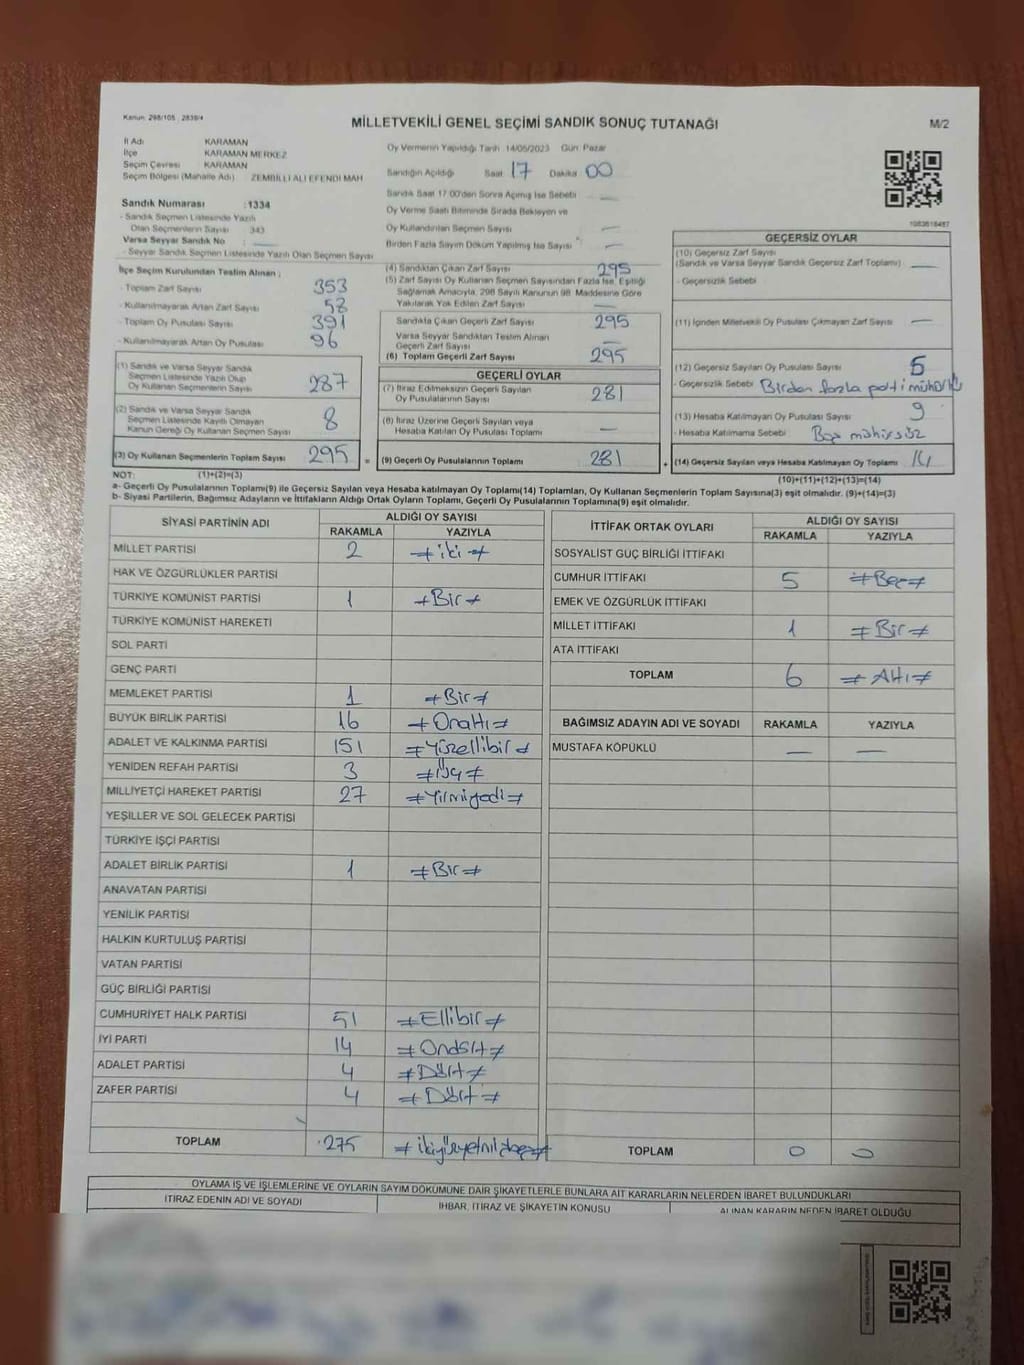 Kanun: 298/105 , 2839/4
MİLLETVEKİLİ GENEL SEÇİMİ SANDIK SONUÇ TUTANAĞI
M/2
İl Adı KARAMAN
İlçe KARAMAN MERKEZ
Seçim Çevresi KARAMAN
Seçim Bölgesi (Mahalle Adı) ZEMBİLLİ ALİ EFENDİ MAH
Sandık Numarası : 1334
- Sandık Seçmen Listesinde Yazılı
Olan Seçmenlerin Sayısı 343
Varsa Seyyar Sandık No :
- Seyyar Sandık Seçmen Listesinde Yazılı Olan Seçmen Sayısı
İlçe Seçim Kurulundan Teslim Alınan ;
- Toplam Zarf Sayısı 353
- Kullanılmayarak Artan Zarf Sayısı 58
- Toplam Oy Pusulası Sayısı 391
- Kullanılmayarak Artan Oy Pusulası 96
(1) Sandık ve Varsa Seyyar Sandık
Seçmen Listesinde Yazılı Olup
Oy Kullanan Seçmenlerin Sayısı 287
(2) Sandık ve Varsa Seyyar Sandık
Seçmen Listesinde Kayıtlı Olmayan
Kanun Gereği Oy Kullanan Seçmen Sayısı 8
(3) Oy Kullanan Seçmenlerin Toplam Sayısı 295
Oy Vermenin Yapıldığı Tarih 14/05/2023 Gün: Pazar
Sandığın Açıldığı Saat 17 Dakika 00
Sandık Saat 17:00'den Sonra Açılmış İse Sebebi —
Oy Verme Saati Bitiminde Sırada Bekleyen ve
Oy Kullandırılan Seçmen Sayısı —
Birden Fazla Sayım Döküm Yapılmış İse Sayısı —
(4) Sandıktan Çıkan Zarf Sayısı 295
(5) Zarf Sayısı Oy Kullanan Seçmen Sayısından Fazla İse, Eşitliği
Sağlamak Amacıyla, 298 Sayılı Kanunun 98. Maddesine Göre
Yakılarak Yok Edilen Zarf Sayısı —
Sandıkta Çıkan Geçerli Zarf Sayısı 295
Varsa Seyyar Sandıktan Teslim Alınan
Geçerli Zarf Sayısı —
(6) Toplam Geçerli Zarf Sayısı 295
GEÇERLİ OYLAR
(7) İtiraz Edilmeksizin Geçerli Sayılan
Oy Pusulalarının Sayısı 281
(8) İtiraz Üzerine Geçerli Sayılan veya
Hesaba Katılan Oy Pusulası Toplamı —
= (9) Geçerli Oy Pusulalarının Toplamı 281 +
1083618487
GEÇERSİZ OYLAR
(10) Geçersiz Zarf Sayısı
(Sandık ve Varsa Seyyar Sandık Geçersiz Zarf Toplamı) —
- Geçersizlik Sebebi
(11) İçinden Milletvekili Oy Pusulası Çıkmayan Zarf Sayısı —
(12) Geçersiz Sayılan Oy Pusulası Sayısı 5
- Geçersizlik Sebebi Birden fazla parti mühürlü
(13) Hesaba Katılmayan Oy Pusulası Sayısı 9
- Hesaba Katılmama Sebebi Boş mühürsüz
(14) Geçersiz Sayılan veya Hesaba Katılmayan Oy Toplamı 14
NOT: (1)+(2)=(3) (10)+(11)+(12)+(13)=(14)
a- Geçerli Oy Pusulaları Toplamı(9) ile Geçersiz Sayılan veya Hesaba katılmayan Oy Toplamı(14) Toplamları, Oy Kullanan Seçmenlerin Toplam Sayısına(3) eşit olmalıdır. (9)+(14)=(3)
b- Siyasi Partilerin, Bağımsız Adayların ve İttifakların Aldığı Ortak Oyların Toplamı, Geçerli Oy Pusulalarının Toplamına(9) eşit olmalıdır.
SİYASİ PARTİNİN ADI ALDIĞI OY SAYISI
RAKAMLA YAZIYLA
MİLLET PARTİSİ 2 iki
HAK VE ÖZGÜRLÜKLER PARTİSİ
TÜRKİYE KOMÜNİST PARTİSİ 1 Bir
TÜRKİYE KOMÜNİST HAREKETİ
SOL PARTİ
GENÇ PARTİ
MEMLEKET PARTİSİ 1 Bir
BÜYÜK BİRLİK PARTİSİ 16 Onaltı
ADALET VE KALKINMA PARTİSİ 151 Yüzellibir
YENİDEN REFAH PARTİSİ 3 Üç
MİLLİYETÇİ HAREKET PARTİSİ 27 Yirmiyedi
YEŞİLLER VE SOL GELECEK PARTİSİ
TÜRKİYE İŞÇİ PARTİSİ
ADALET BİRLİK PARTİSİ 1 Bir
ANAVATAN PARTİSİ
YENİLİK PARTİSİ
HALKIN KURTULUŞ PARTİSİ
VATAN PARTİSİ
GÜÇ BİRLİĞİ PARTİSİ
CUMHURİYET HALK PARTİSİ 51 Ellibir
İYİ PARTİ 14 Ondört
ADALET PARTİSİ 4 Dört
ZAFER PARTİSİ 4 Dört
TOPLAM 275 ikiyüzyetmişbeş
İTTİFAK ORTAK OYLARI ALDIĞI OY SAYISI
RAKAMLA YAZIYLA
SOSYALİST GÜÇ BİRLİĞİ İTTİFAKI
CUMHUR İTTİFAKI 5 Beş
EMEK VE ÖZGÜRLÜK İTTİFAKI
MİLLET İTTİFAKI 1 Bir
ATA İTTİFAKI
TOPLAM 6 Altı
BAĞIMSIZ ADAYIN ADI VE SOYADI RAKAMLA YAZIYLA
MUSTAFA KÖPÜKLÜ — —
TOPLAM 0 0
OYLAMA İŞ VE İŞLEMLERİNE VE OYLARIN SAYIM DÖKÜMÜNE DAİR ŞİKAYETLERLE BUNLARA AİT KARARLARIN NELERDEN İBARET BULUNDUKLARI
İTİRAZ EDENİN ADI VE SOYADI İHBAR, İTİRAZ VE ŞİKAYETİN KONUSU ALINAN KARARIN NEDEN İBARET OLDUĞU